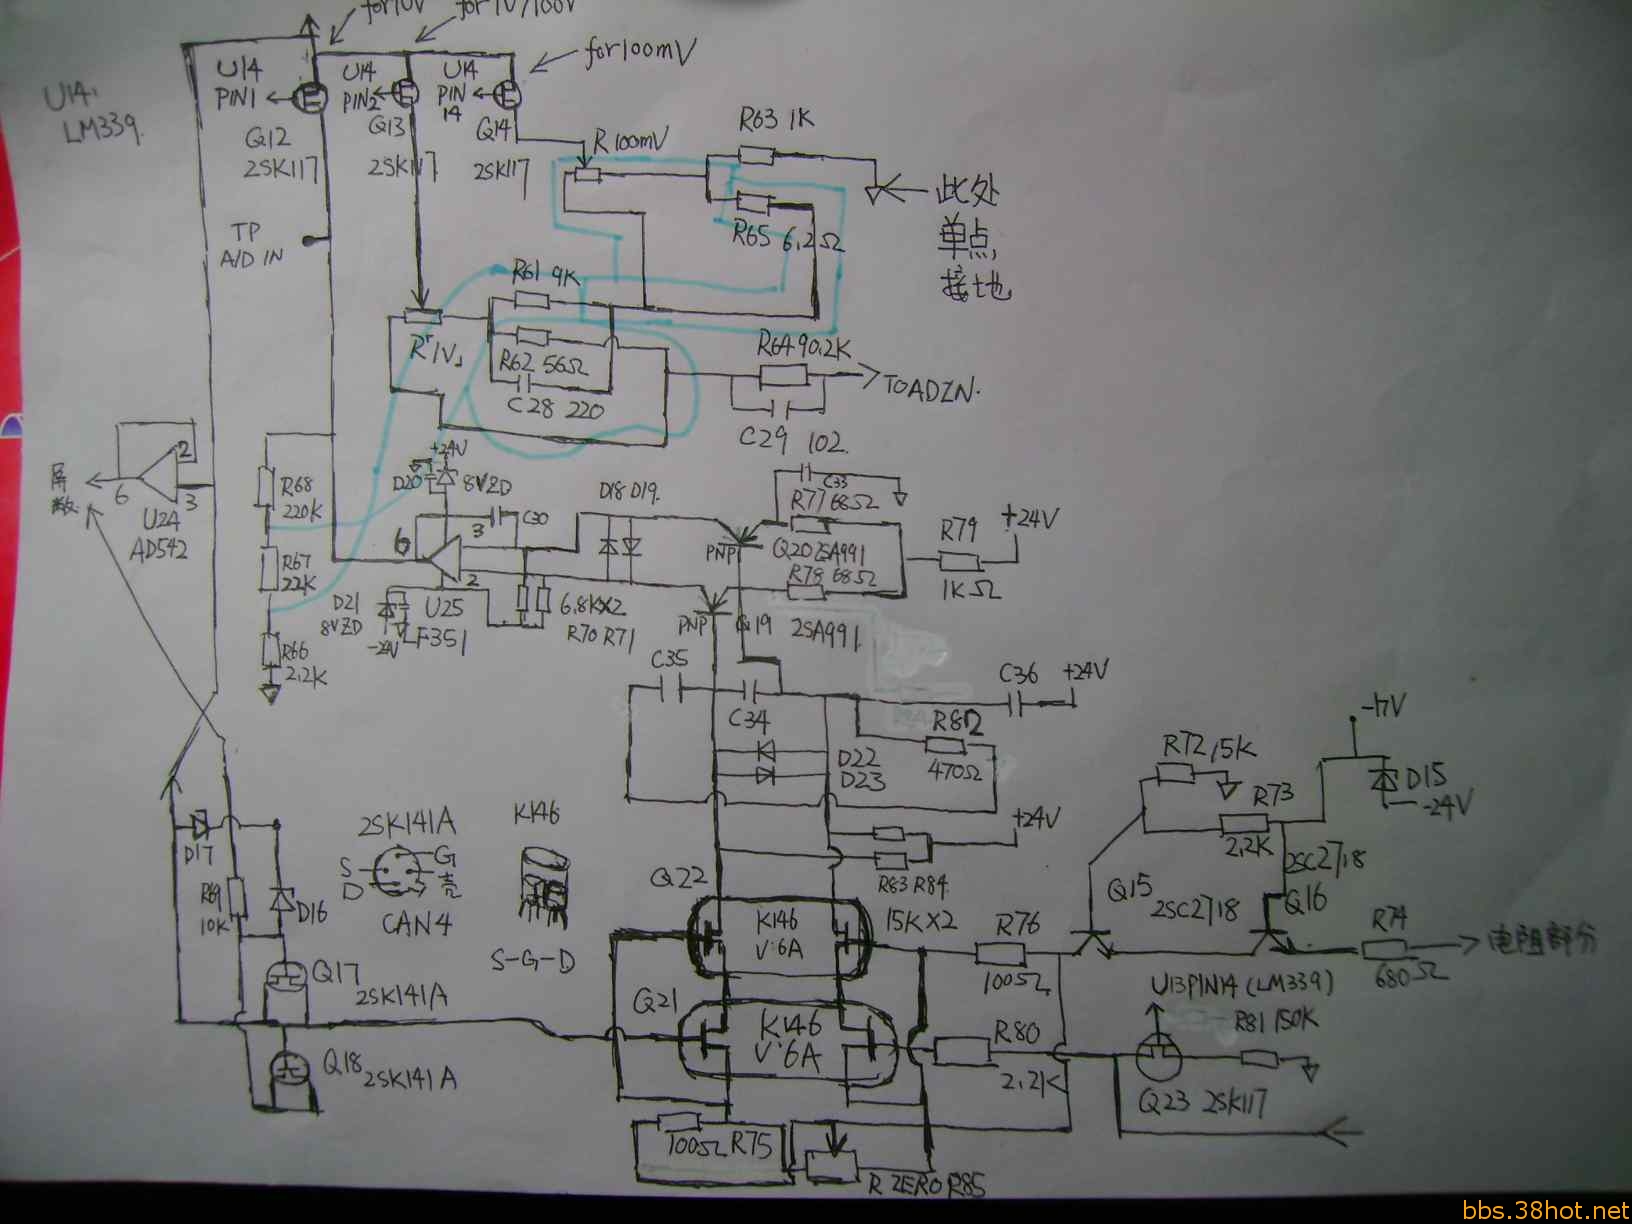 for10V
for 1V/100V
for100mV
U14:
LM339.
U14
PIN1
U14
PIN2
U14
PIN
14
Q12
2SK117
Q13
2SK117
Q14
2SK117
R100mV
R63 1K
R65 6.2Ω
此处
单点
接地
TP
A/D IN
R61 9K
R「1V」
R62 56Ω
C28 220
R64 90.2K
TOADZN.
C29 102.
2
6
3
U24
AD542
R68
220K
R67
22K
R66
2.2K
+24V
D20
8VZD
C30
D18 D19.
6
3
2
U25
LF351
D21
8VZD
-24V
6.8K×2
R70 R71
C33
R77 68Ω
PNP
Q20 2SA991
R78 68Ω
R79
1KΩ
+24V
PNP
Q19
2SA991.
C35
C34
C36
+24V
R82
470Ω
D22
D23
+24V
R83 R84
15K×2
-17V
R72 15K
D15
-24V
R73
2.2K
2SC2718
Q16
Q15
2SC2718
R74
680Ω
电阻部分
D17
R69
10K
D16
2SK141A
S
G
D
壳
CAN4
K146
S-G-D
Q22
K146
V:6A
R76
100Ω
Q17
2SK141A
Q21
K146
V:6A
Q18 2SK141A
R80
2.2K
U13PIN14 (LM339)
R81 150K
Q23 2SK117
100Ω R75
R ZERO R85
bbs.38hot.net